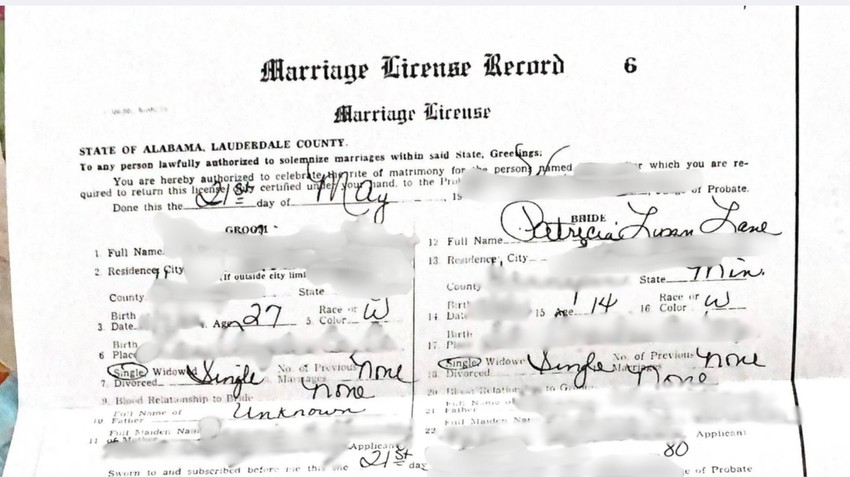 Marriage License Record 6
Marriage License
STATE OF ALABAMA, LAUDERDALE COUNTY.
To any person lawfully authorized to solemnize marriages within said State, Greetings:
You are hereby authorized to celebrate the rite of matrimony for the persons named for which you are re-
quired to return this license certified under your hand, to the of Probate.
Done this the 21st day of May 19
GROOM BRIDE
1. Full Name 12 Full Name Patricia Susan Lane
2. Residence, City 13 Residence, City
If outside city limi
County State County State Min.
3. Birth Date 4. Age 27 5. Race or Color W 14 Birth 15 Age 14 16 Race or Color W
6 Birth Place 17 Birth
7. Single Widowed Divorced Single No. of Previous Marriages None 18 Single Widowe Divorced Single No. of Previous Marriages None
9. Blood Relationship to Bride None 20 Blood Relation to None
10 Full Name of Father Unknown 21 Full Name of Father
11 Full Maiden Name of Mother 22 Full Maiden
Applicant Applicant
Sworn to and subscribed before me this the 21st day 80
of Probate